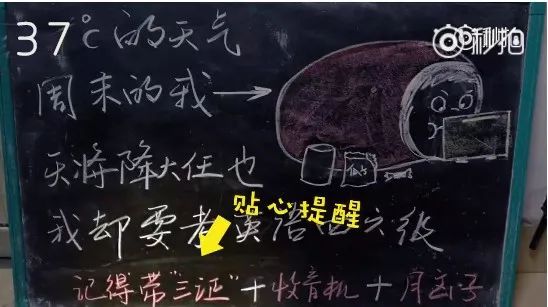 37℃的天气
秒拍
周末的我→
天将降大任也
贴心提醒
我却要考英语四六级
记得带"三证"+收音机+周囱子